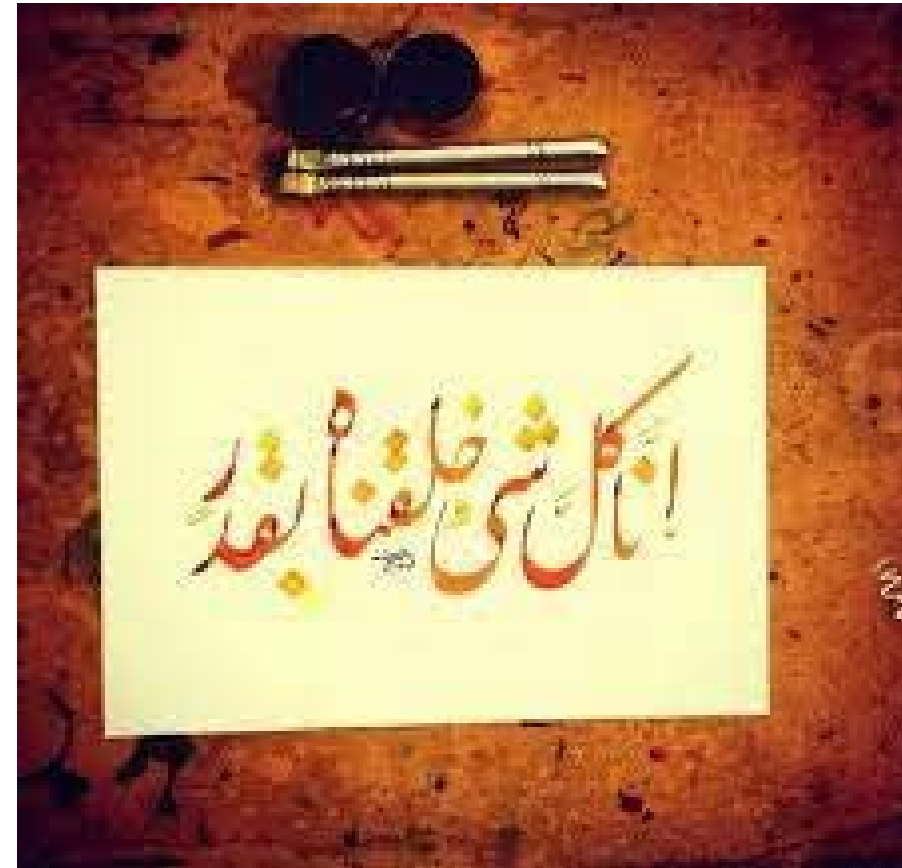 انا كل شئ خلقناه بقدر